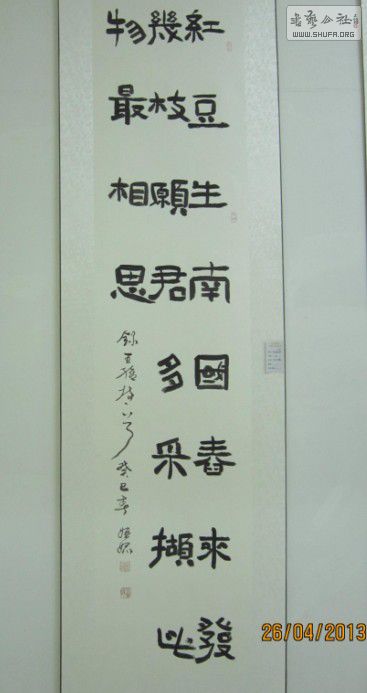 紅豆生南國春來發
幾枝願君多采擷此
物最相思
錄王維詩一首 癸巳春
書藝公社
WWW.SHUFA.ORG
26/04/2013